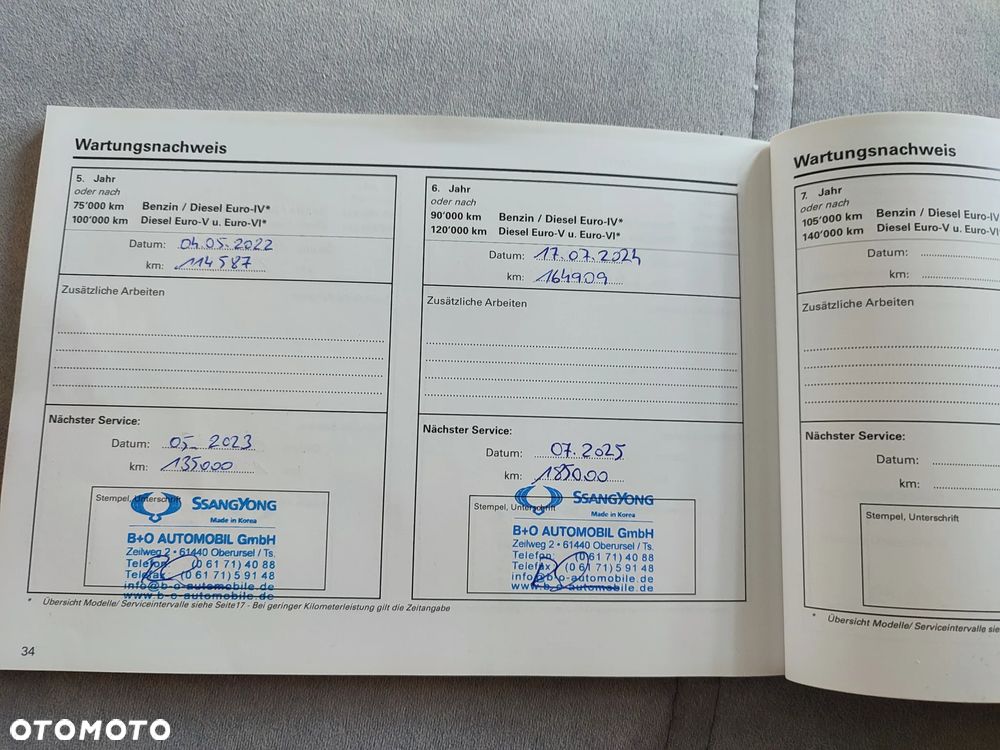 Wartungsnachweis
5. Jahr
oder nach
75'000 km Benzin / Diesel Euro-IV*
100'000 km Diesel Euro-V u. Euro-VI*
Datum: 04.05.2022
km: 114587
Zusätzliche Arbeiten
Nächster Service:
Datum: 05 2023
km: 135000
Stempel, Unterschrift
SSANGYONG
Made in Korea
B+O AUTOMOBIL GmbH
Zeilweg 2 • 61440 Oberursel / Ts.
Telefon: (0 61 71) 40 88
Telefax (0 61 71) 5 91 48
info@b-o-automobile.de
www.b-o-automobile.de
6. Jahr
oder nach
90'000 km Benzin / Diesel Euro-IV*
120'000 km Diesel Euro-V u. Euro-VI*
Datum: 17.07.2024
km: 164909
Zusätzliche Arbeiten
Nächster Service:
Datum: 07.2025
km: 185000
Stempel, Unterschrift
SSANGYONG
Made in Korea
B+O AUTOMOBIL GmbH
Zeilweg 2 • 61440 Oberursel / Ts.
Telefon: (0 61 71) 40 88
Telefax (0 61 71) 5 91 48
info@b-o-automobile.de
www.b-o-automobile.de
* Übersicht Modelle/ Serviceintervalle siehe Seite17 - Bei geringer Kilometerleistung gilt die Zeitangabe
34
Wartungsnachweis
7. Jahr
oder nach
105'000 km Benzin / Diesel Euro-IV
140'000 km Diesel Euro-V u. Euro-VI*
Datum:
km:
Zusätzliche Arbeiten
Nächster Service:
Datum:
km:
Stempel, Unterschrift
* Übersicht Modelle/ Serviceintervalle sie
OTOMOTO